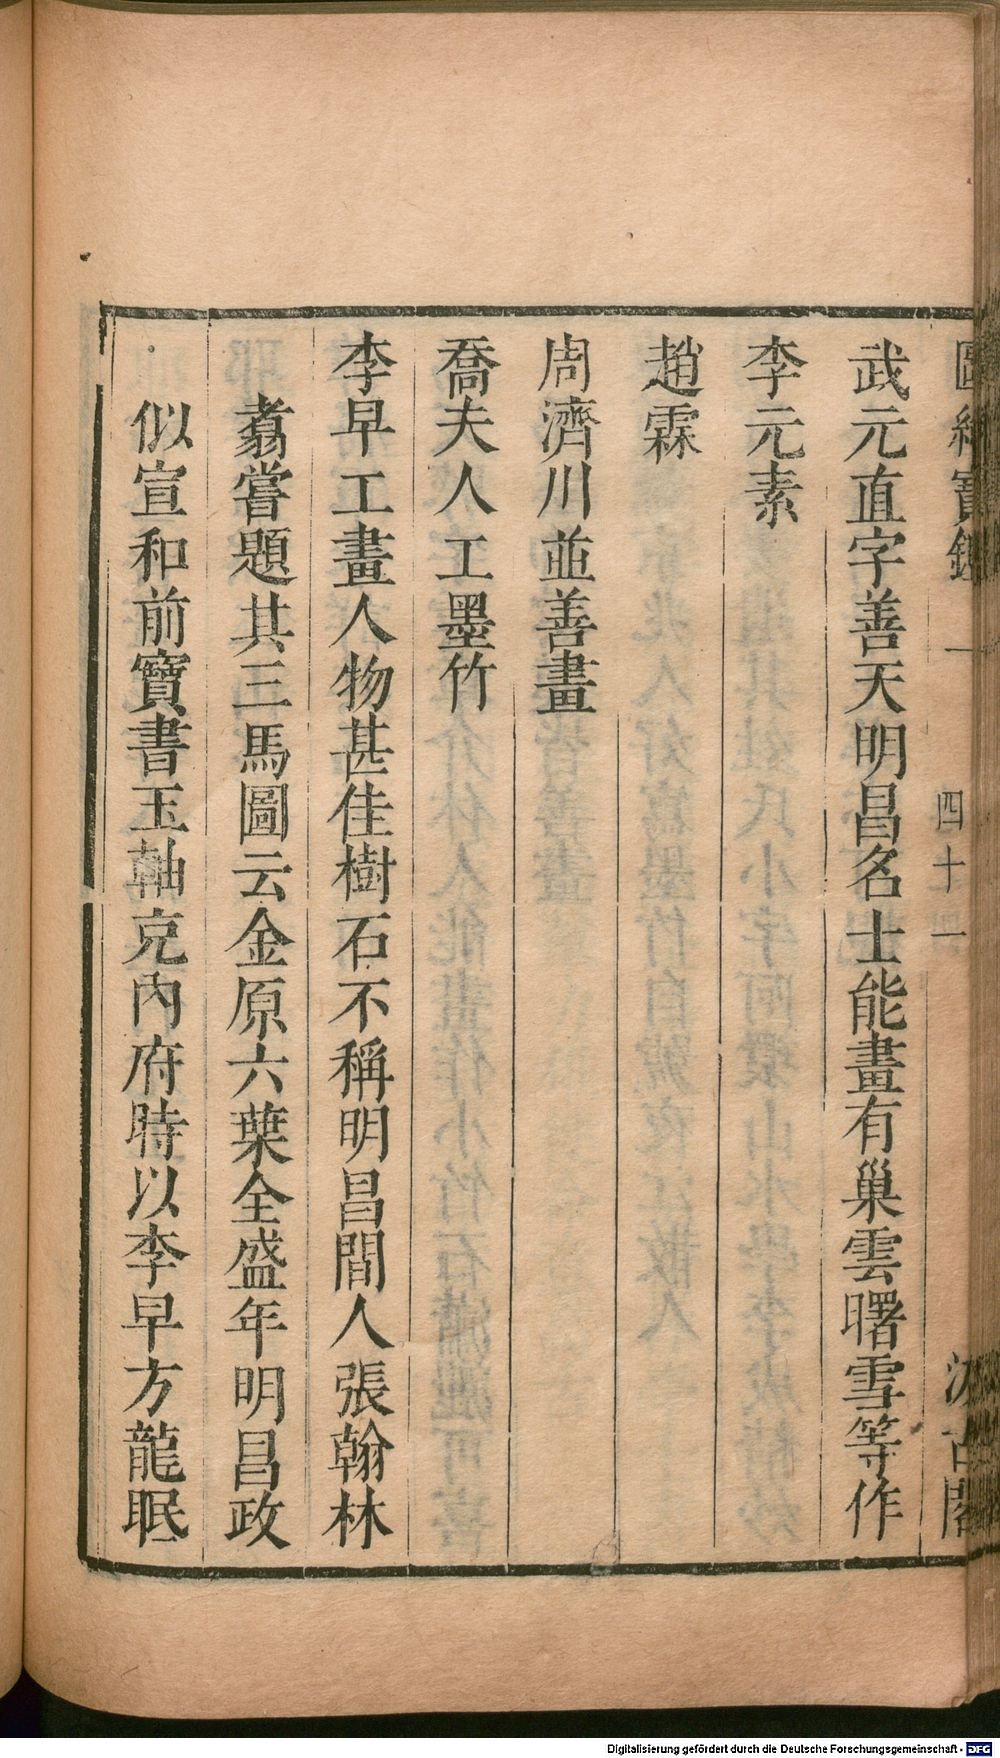 圖繪寶鑑 一 四十一 汲古閣
武元直字善夫明昌名士能畫有巢雲曙雪等作
李元素
趙霖
周濟川並善畫
喬夫人工墨竹
李早工畫人物甚佳樹石不稱明昌間人張翰林
翥嘗題其三馬圖云金原六葉全盛年明昌政
似宣和前寶書玉軸克內府時以李早方龍眠
Digitalisierung gefördert durch die Deutsche Forschungsgemeinschaft - DFG